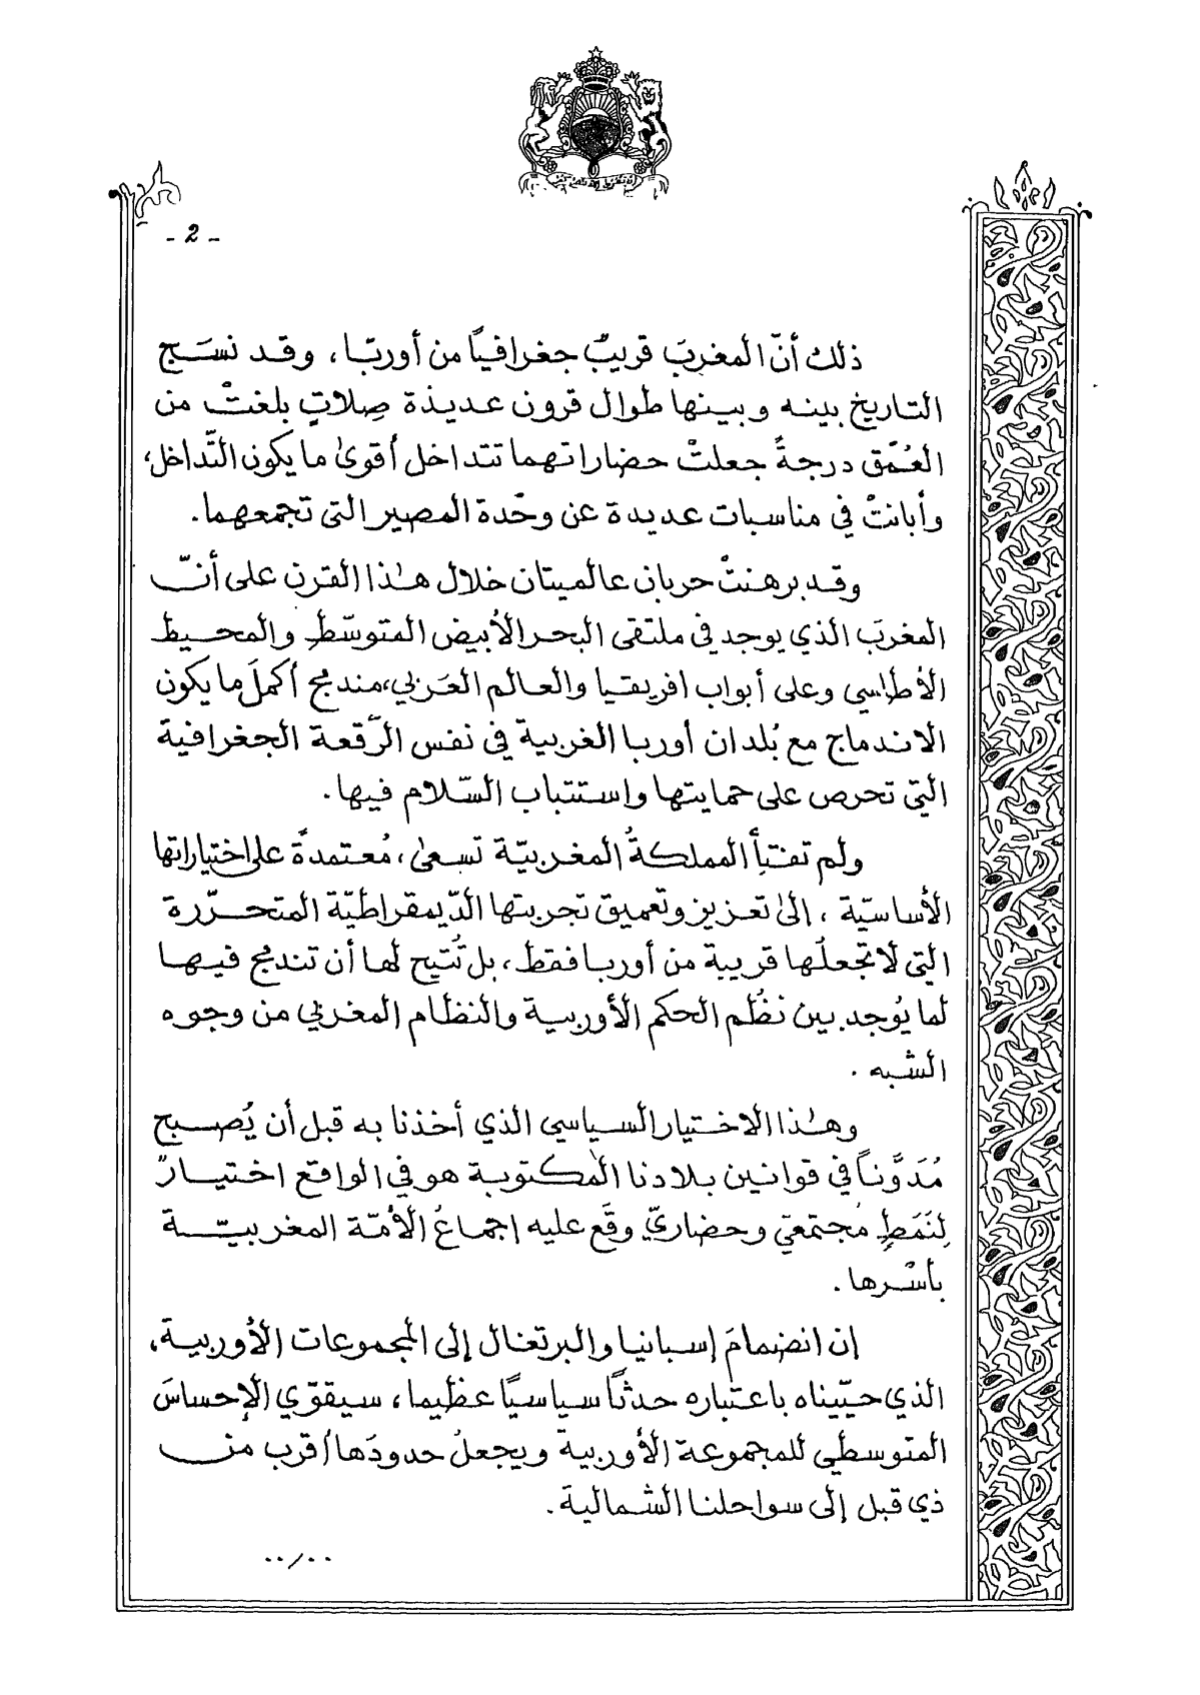 - 2 -
ذلك أنّ المغربَ قريبٌ جغرافياً من أوربّا، وقد نسَج
التاريخ بينه وبينها طوال قرون عديدة صِلاتٍ بلغتْ من
العُمْق درجةً جعلتْ حضاراتهما تتداخل أقوىٰ ما يكون التّداخل،
وأبانتْ في مناسبات عديدة عن وحْدة المصير التي تجمعهما.
وقد برهنتْ حربان عالميتان خلال هٰذا القرن على أنّ
المغربَ الذي يوجد في ملتقى البحر الأبيض المتوسّط والمحيط
الأطلسي وعلى أبواب افريقيا والعالم العَربي، مندمج أكملَ ما يكون
الاندماج مع بُلدان أوربا الغربية في نفس الرّقعة الجغرافية
التي تحرص على حمايتها واستتباب السّلام فيها.
ولم تفتأِ المملكةُ المغربيّة تسعىٰ، مُعتمدةً على اختياراتها
الأساسيّة، الىٰ تعزيز وتعميق تجربتها الدّيمقراطيّة المتحرّرة
التي لا تجعلُها قريبة من أوربا فقط، بل تُتيح لها أن تندمج فيها
لما يُوجد بين نظُم الحكم الأوربية والنظام المغربي من وجوه
الشبه .
وهٰذا الاختيار السياسي الذي أخذنا به قبل أن يُصبح
مُدَوَّناً في قوانين بلادنا المكتوبة هو في الواقع اختيارٌ
لِنَمَطٍ مُجتمعيّ وحضاريّ وقَع عليه اجماعُ الأمّة المغربيّة
بأسْرها.
ان انضمامَ إسبانيا والبرتغال إلى المجموعات الأوربية،
الذي حيّيناه باعتباره حدثاً سياسيًا عظيما، سيقوّي الإحساسَ
المتوسطي للمجموعة الأوربية ويجعلُ حدودَها أقرب من
ذي قبل إلى سواحلنا الشمالية.
../..